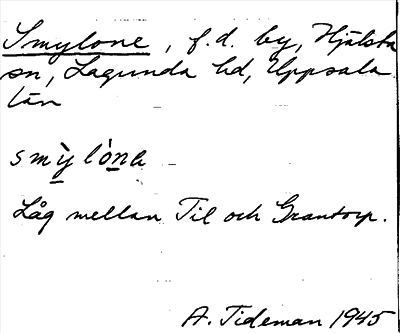 Smylone, f.d. by, Hjälsta
sn, Lagunda hd, Uppsala
län
smỳlòna
Låg mellan Til och Grantorp.
A. Tideman 1945